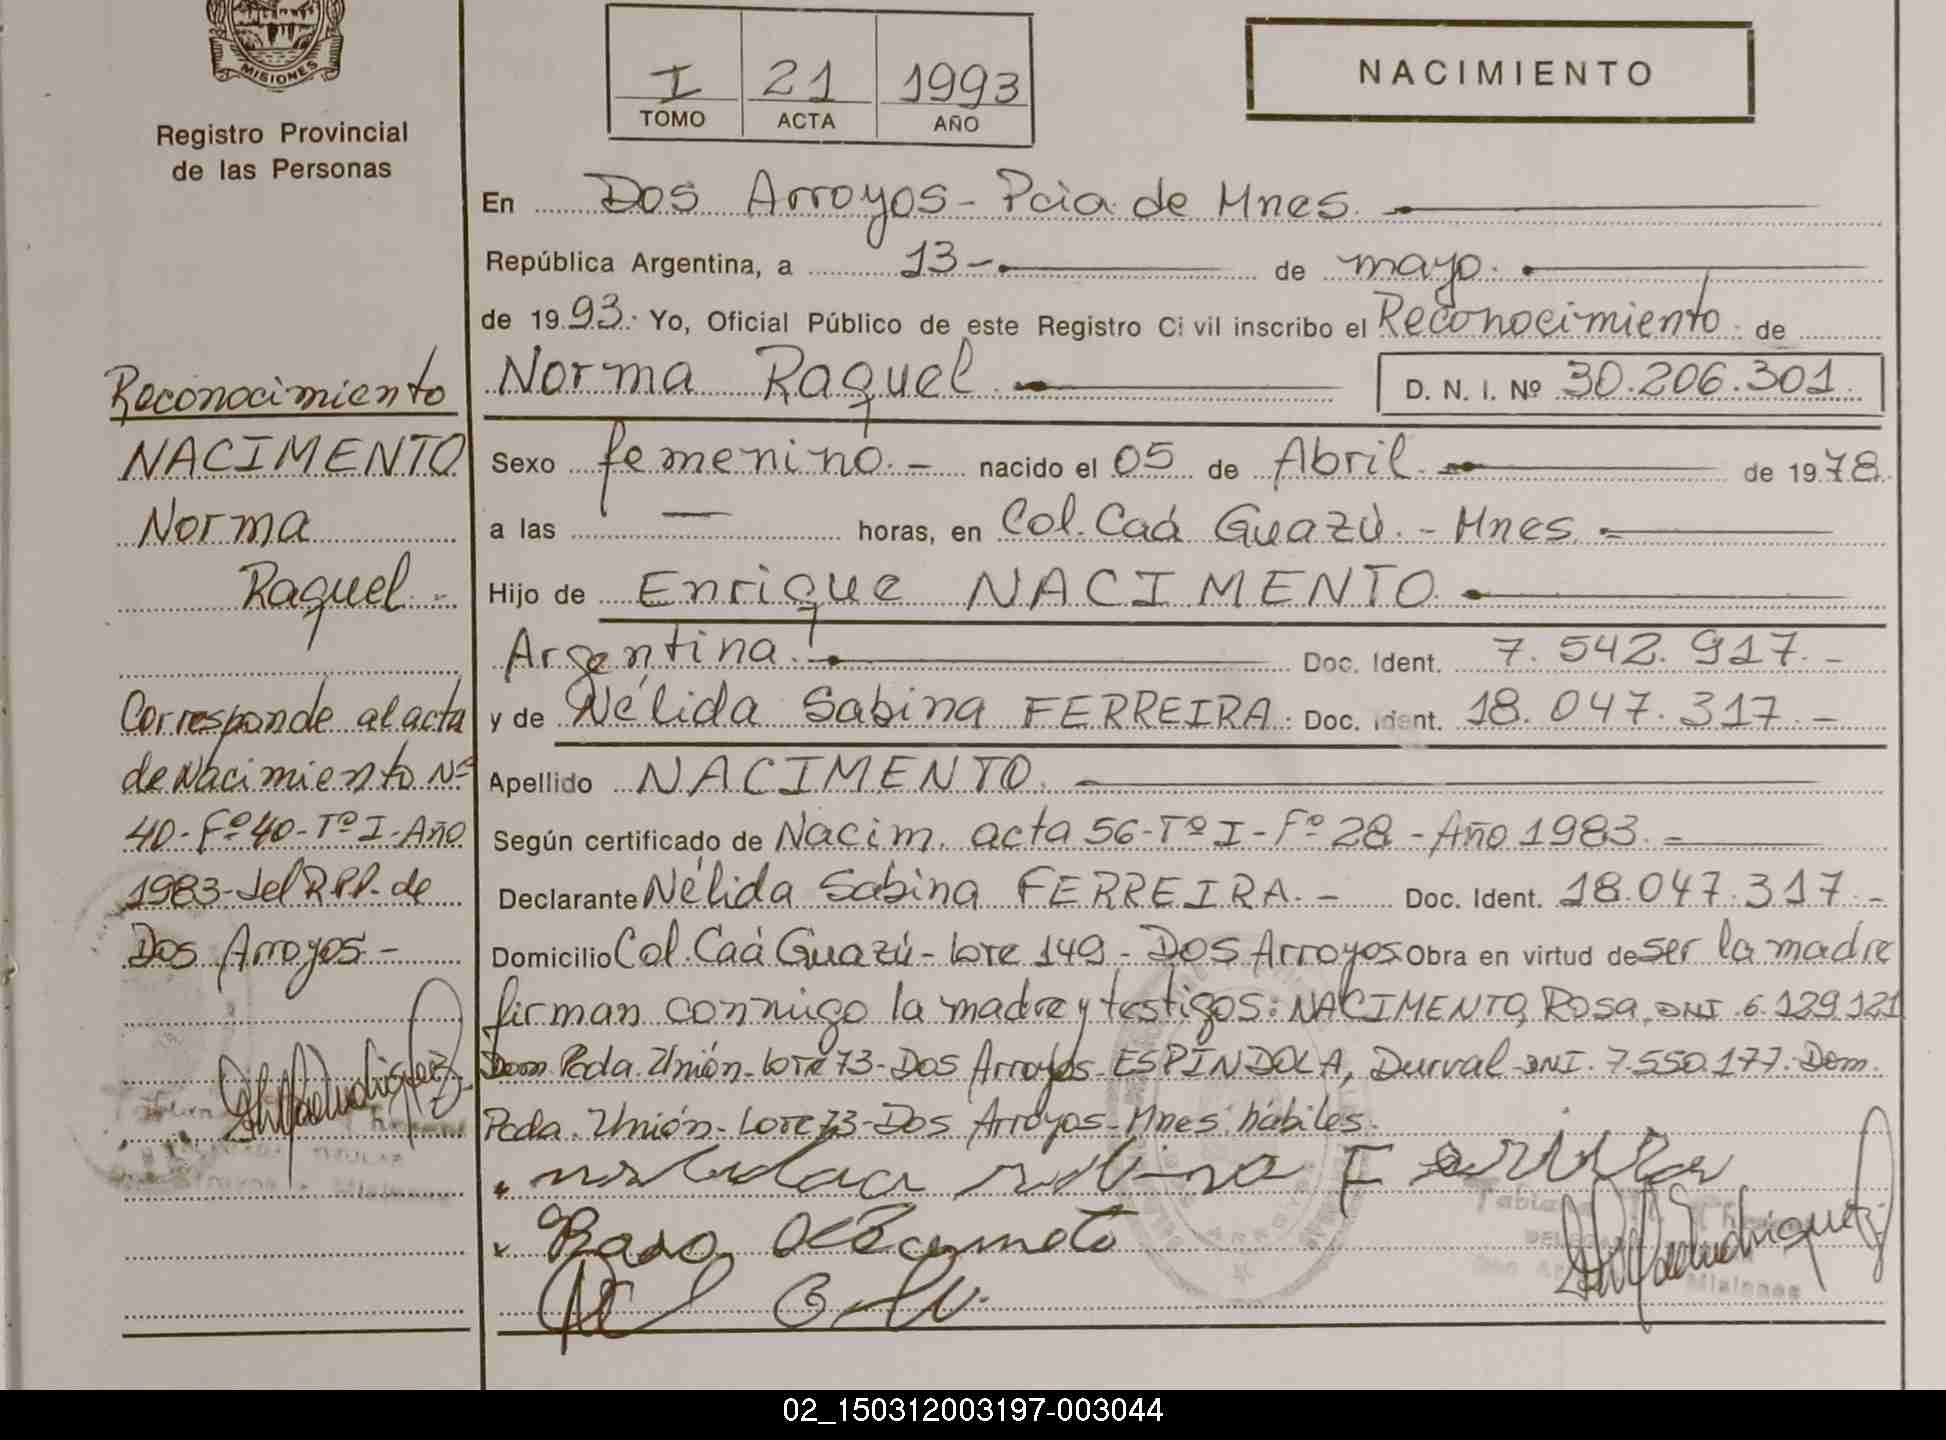 MISIONES
Registro Provincial
de las Personas
I 21 1993
TOMO ACTA AÑO
NACIMIENTO
En Dos Arroyos - Pcia. de Mnes.
República Argentina, a 13 - de mayo.
de 1993. Yo, Oficial Público de este Registro Civil inscribo el Reconocimiento de
Norma Raquel D. N. I. Nº 30.206.301.
Sexo femenino. - nacido el 05 de Abril de 1978.
a las — horas, en Col. Caá Guazú. - Mnes.
Hijo de Enrique NACIMENTO
Argentina. Doc. Ident. 7.542.917. -
y de Nélida Sabina FERREIRA. Doc. Ident. 18.047.317. -
Apellido NACIMENTO.
Según certificado de Nacim. acta 56-Tº I - Fº 28 - Año 1983. -
Declarante Nélida Sabina FERREIRA. - Doc. Ident. 18.047.317. -
Domicilio Col. Caá Guazú - Lote 149 - Dos Arroyos Obra en virtud de ser la madre
firman conmigo la madre y testigos: NACIMENTO, Rosa, DNI 6.129.121
Dom. Pcda. Unión - Lote 73 - Dos Arroyos. ESPINDOLA, Durval - DNI. 7.550.177. Dom.
Pcda. Unión - Lote 73 - Dos Arroyos - Mnes. hábiles.
Reconocimiento
NACIMENTO
Norma
Raquel. -
Corresponde al acta
de Nacimiento Nº
40 - Fº 40 - Tº I - Año
1983 - del R.P.P. de
Dos Arroyos -
02_150312003197-003044